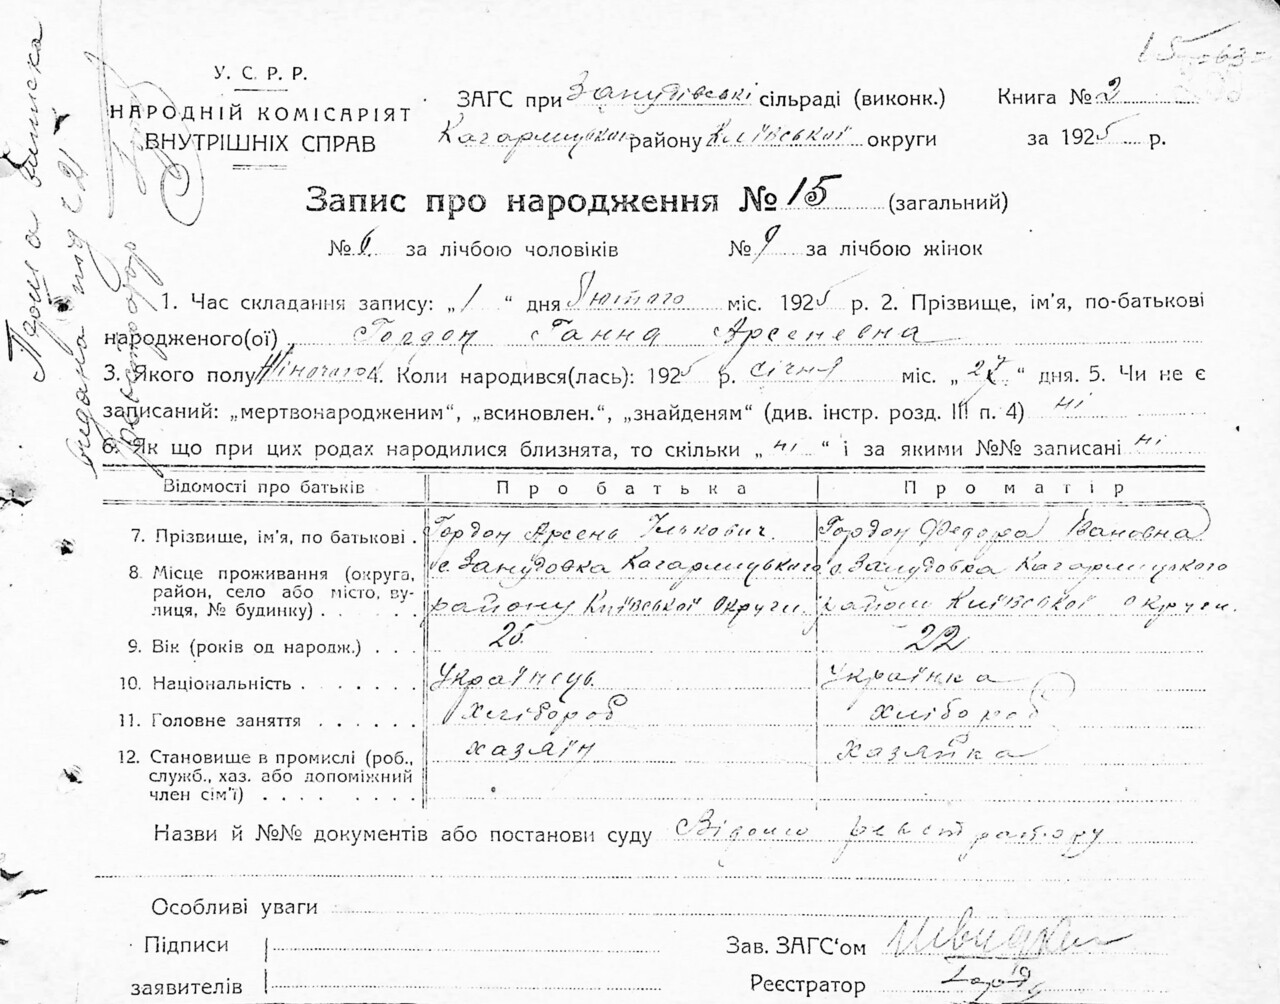 У. С. Р. Р.
НАРОДНІЙ КОМІСАРІЯТ
ВНУТРІШНІХ СПРАВ
ЗАГС при сільраді (виконк.) Книга № 2
Кагарлицьком району Київської округи за 1925 р.
Запис про народження № 15 (загальний)
№ 6 за лічбою чоловіків № 9 за лічбою жінок
1. Час складання запису: „1“ дня лютого міс. 1925 р. 2. Прізвище, ім'я, по-батькові
народженого(ої) Гордон Ганна Арсеневна
3. Якого полу Жіночого 4. Коли народився(лась): 1925 р. січня міс. „27“ дня. 5. Чи не є
записаний: „мертвонародженим“, „всиновлен.“, „знайденям“ (див. інстр. розд. III п. 4) ні
6. Як що при цих родах народилися близнята, то скільки „ні“ і за якими №№ записані ні
Відомості про батьків Про батька Про матір
7. Прізвище, ім'я, по батькові . Гордон Арсень Ількович. Гордон Федора Івановна
8. Місце проживання (округа, район, село або місто, вулиця, № будинку) . . . . . с. Занудовка Кагарлицького району Київської округи с. Занудовка Кагарлицького району Київської округи.
9. Вік (років од народж.) . . . 25 22
10. Національність . . . . . . . Українець Українка
11. Головне заняття . . . . . . Хлібороб хлібороб
12. Становище в промислі (роб., служб., хаз. або допоміжний член сім'ї) . . . . . . . . хазяїн хазяйка
Назви й №№ документів або постанови суду Відомо реєстратору
Особливі уваги
Підписи заявителів
Зав. ЗАГС'ом
Реєстратор